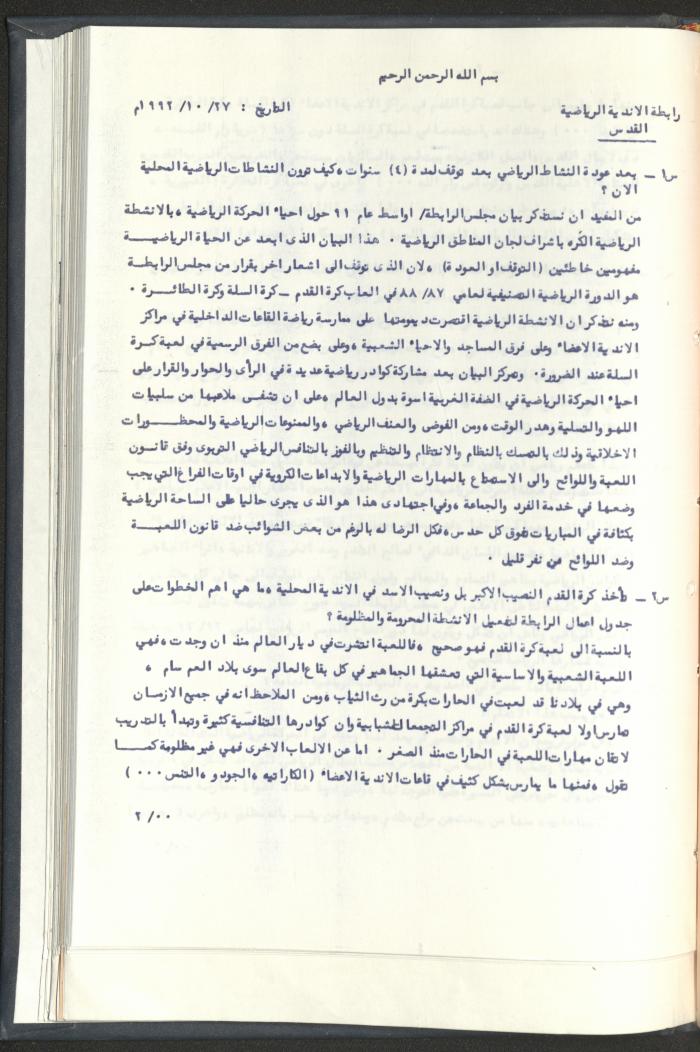 بسم الله الرحمن الرحيم
رابطة الاندية الرياضية التاريخ : ٢٧/ ١٠/ ١٩٩٢م
القدس
س١ ــ بعد عودة النشاط الرياضي بعد توقف لمدة (٤) سنوات ، كيف ترون النشاطات الرياضية المحلية
الان ؟
من المفيد ان نستذكر بيان مجلس الرابطة/ اواسط عام ٩١ حول احياء الحركة الرياضية ، بالانشطة
الرياضية الكره باشراف لجان المناطق الرياضية . هذا البيان الذى ابعد عن الحياة الرياضيــــة
مفهومين خاطئين (التوقف او العودة) ، لان الذى توقف الى اشعار اخر بقرار من مجلس الرابطـة
هو الدورة الرياضية التصنيفية لعامي ٨٧/ ٨٨ في العاب كرة القدم ــ كرة السلة وكرة الطائــــرة .
ومنه نتذكر ان الانشطة الرياضية اقتصرت ديمومتها على ممارسة رياضة القاعات الداخلية في مراكز
الاندية الاعضاء وعلى فرق المساجد والاحياء الشعبية ، وعلى بضع من الفرق الرسمية في لعبة كـرة
السلة عند الضرورة . وتمركز البيان بعد مشاركة كوادر رياضية عديدة في الرأى والحوار والقرار على
احياء الحركة الرياضية في الضفة الغربية اسوة بدول العالم ، على ان تشفـى ملاعبها من سلبيات
اللهو والتسلية وهدر الوقت ، ومن الفوضى والعنف الرياضي ، والممنوعات الرياضية والمحظــــورات
الاخلاقية وذلك بالتمسك بالنظام والانتظام والتنظيم وبالفوز بالتنافس الرياضي التربوى وفق قانـــون
اللعبة واللوائح والى الاستمتاع بالمهارات الرياضية والابداعات الكروية في اوقات الفراغ التي يجب
وضعها في خدمة الفرد والجماعة ، وفي اجتهادى هذا هو الذى يجرى حاليا على الساحة الرياضية
بكثافة في المباريات تفوق كل حدس ، فكل الرضا له بالرغم من بعض الشوائب ضد قانون اللعبــــة
وضد اللوائح من نفر قليل .
س٢ ــ تأخذ كرة القدم النصيب الاكبر بل ونصيب الاسد في الاندية المحلية ، ما هي اهم الخطوات على
جدول اعمال الرابطة لتفعيل الانشطة المحرومة والمظلومة ؟
بالنسبة الى لعبة كرة القدم فهو صحيح ، فاللعبة انتشرت في ديار العالم منذ ان وجدت ، فهي
اللعبة الشعبية والاساسية التي تعشقها الجماهير في كل بقاع العالم سوى بلاد العم سام ،
وهي في بلادنا قد لعبت في الحارات بكرة من رث الثياب ، ومن الملاحظ انه في جميع الازمـان
تمارس اولا لعبة كرة القدم في مراكز التجمعات الشبابية وان كوادرها التنافسية كثيرة وتبدأ بالتدريب
لاتقان مهارات اللعبة في الحارات منذ الصغر . اما عن الالعاب الاخرى فهي غير مظلومة كمــــا
تقول ، فمنها ما يمارس بشكل كثيف في قاعات الاندية الاعضاء (الكاراتيه ، الجودو ، والتنس ...)
٢ /..